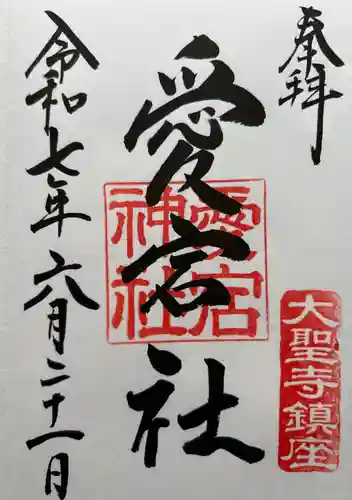 奉拝
愛宕社
愛宕
神社
大聖寺鎮座
令和七年六月二十一日